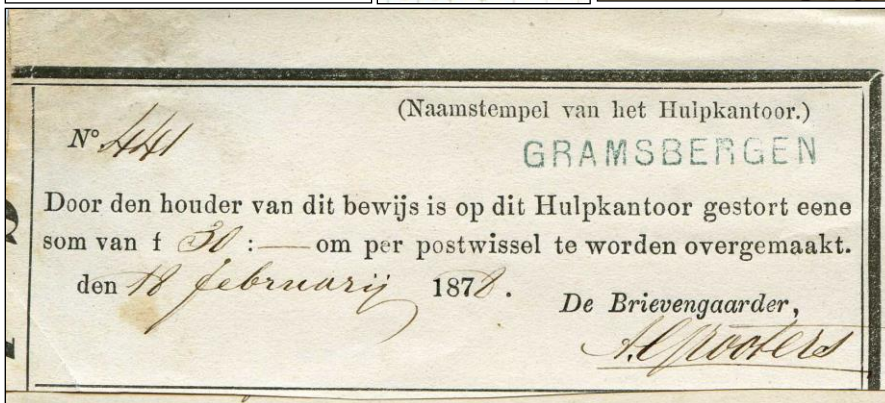 (Naamstempel van het Hulpkantoor.)
N° 441
GRAMSBERGEN
Door den houder van dit bewijs is op dit Hulpkantoor gestort eene
som van f 30 : — om per postwissel te worden overgemaakt.
den 18 februarij 1878.
De Brievengaarder,